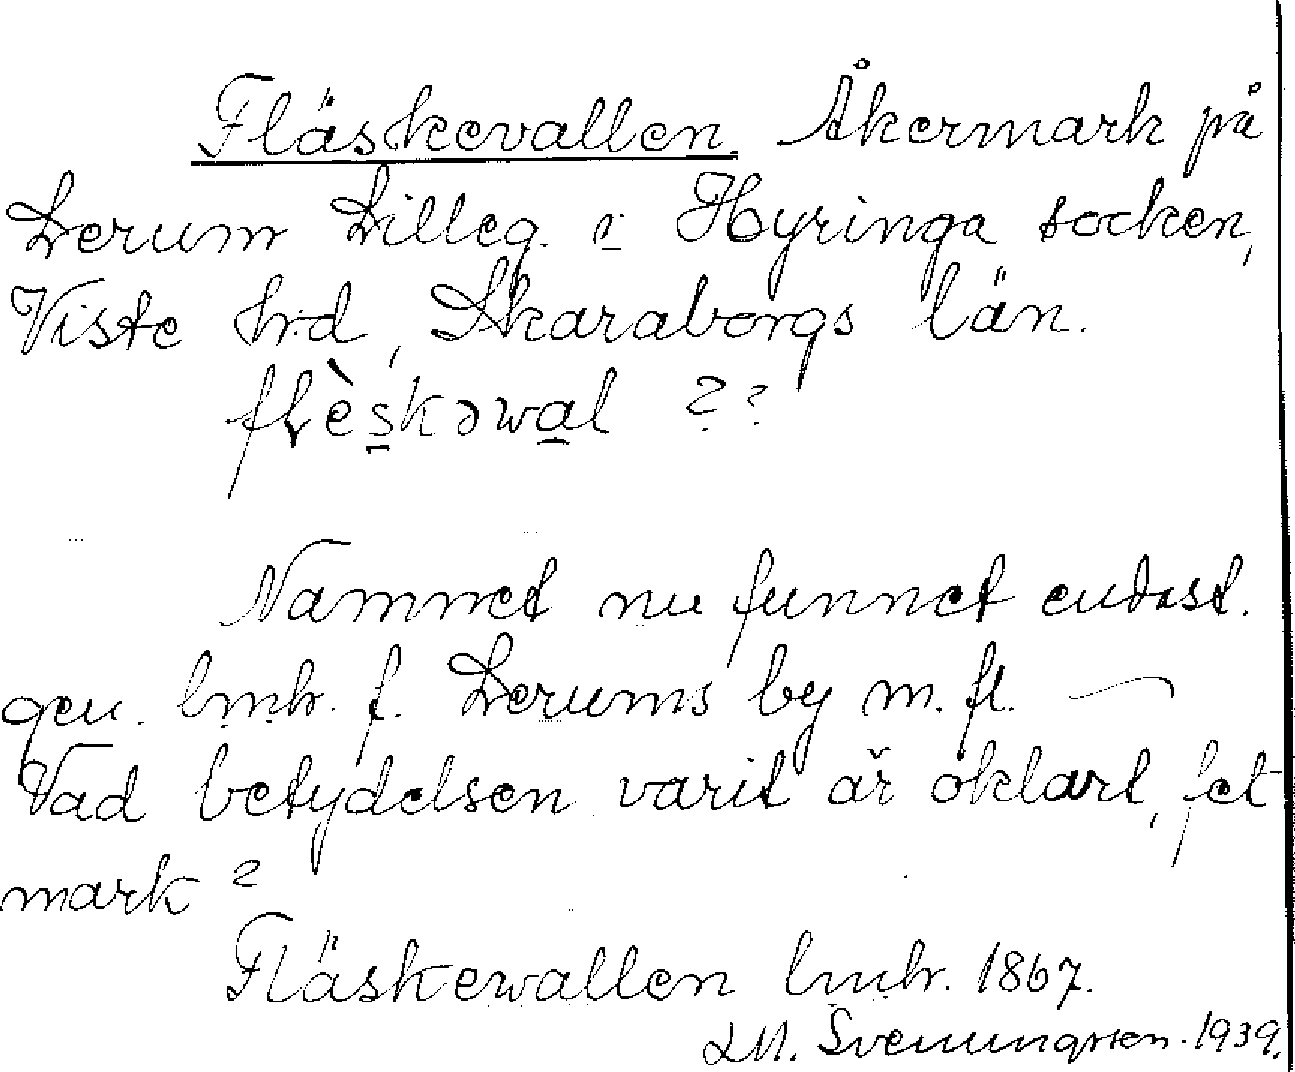 Fläskevallen. Åkermark på
Lerum Lilleg. i Hyringa socken,
Viste hrd, Skaraborgs län.
flèskəwal ??
Namnet nu funnet endast.
gen. lmhr. f. Lerums by m. fl. —
Vad betydelsen varit är oklart, fet
mark?
Fläskewallen lmhr. 1867.
LM. Svenungsson. 1939.